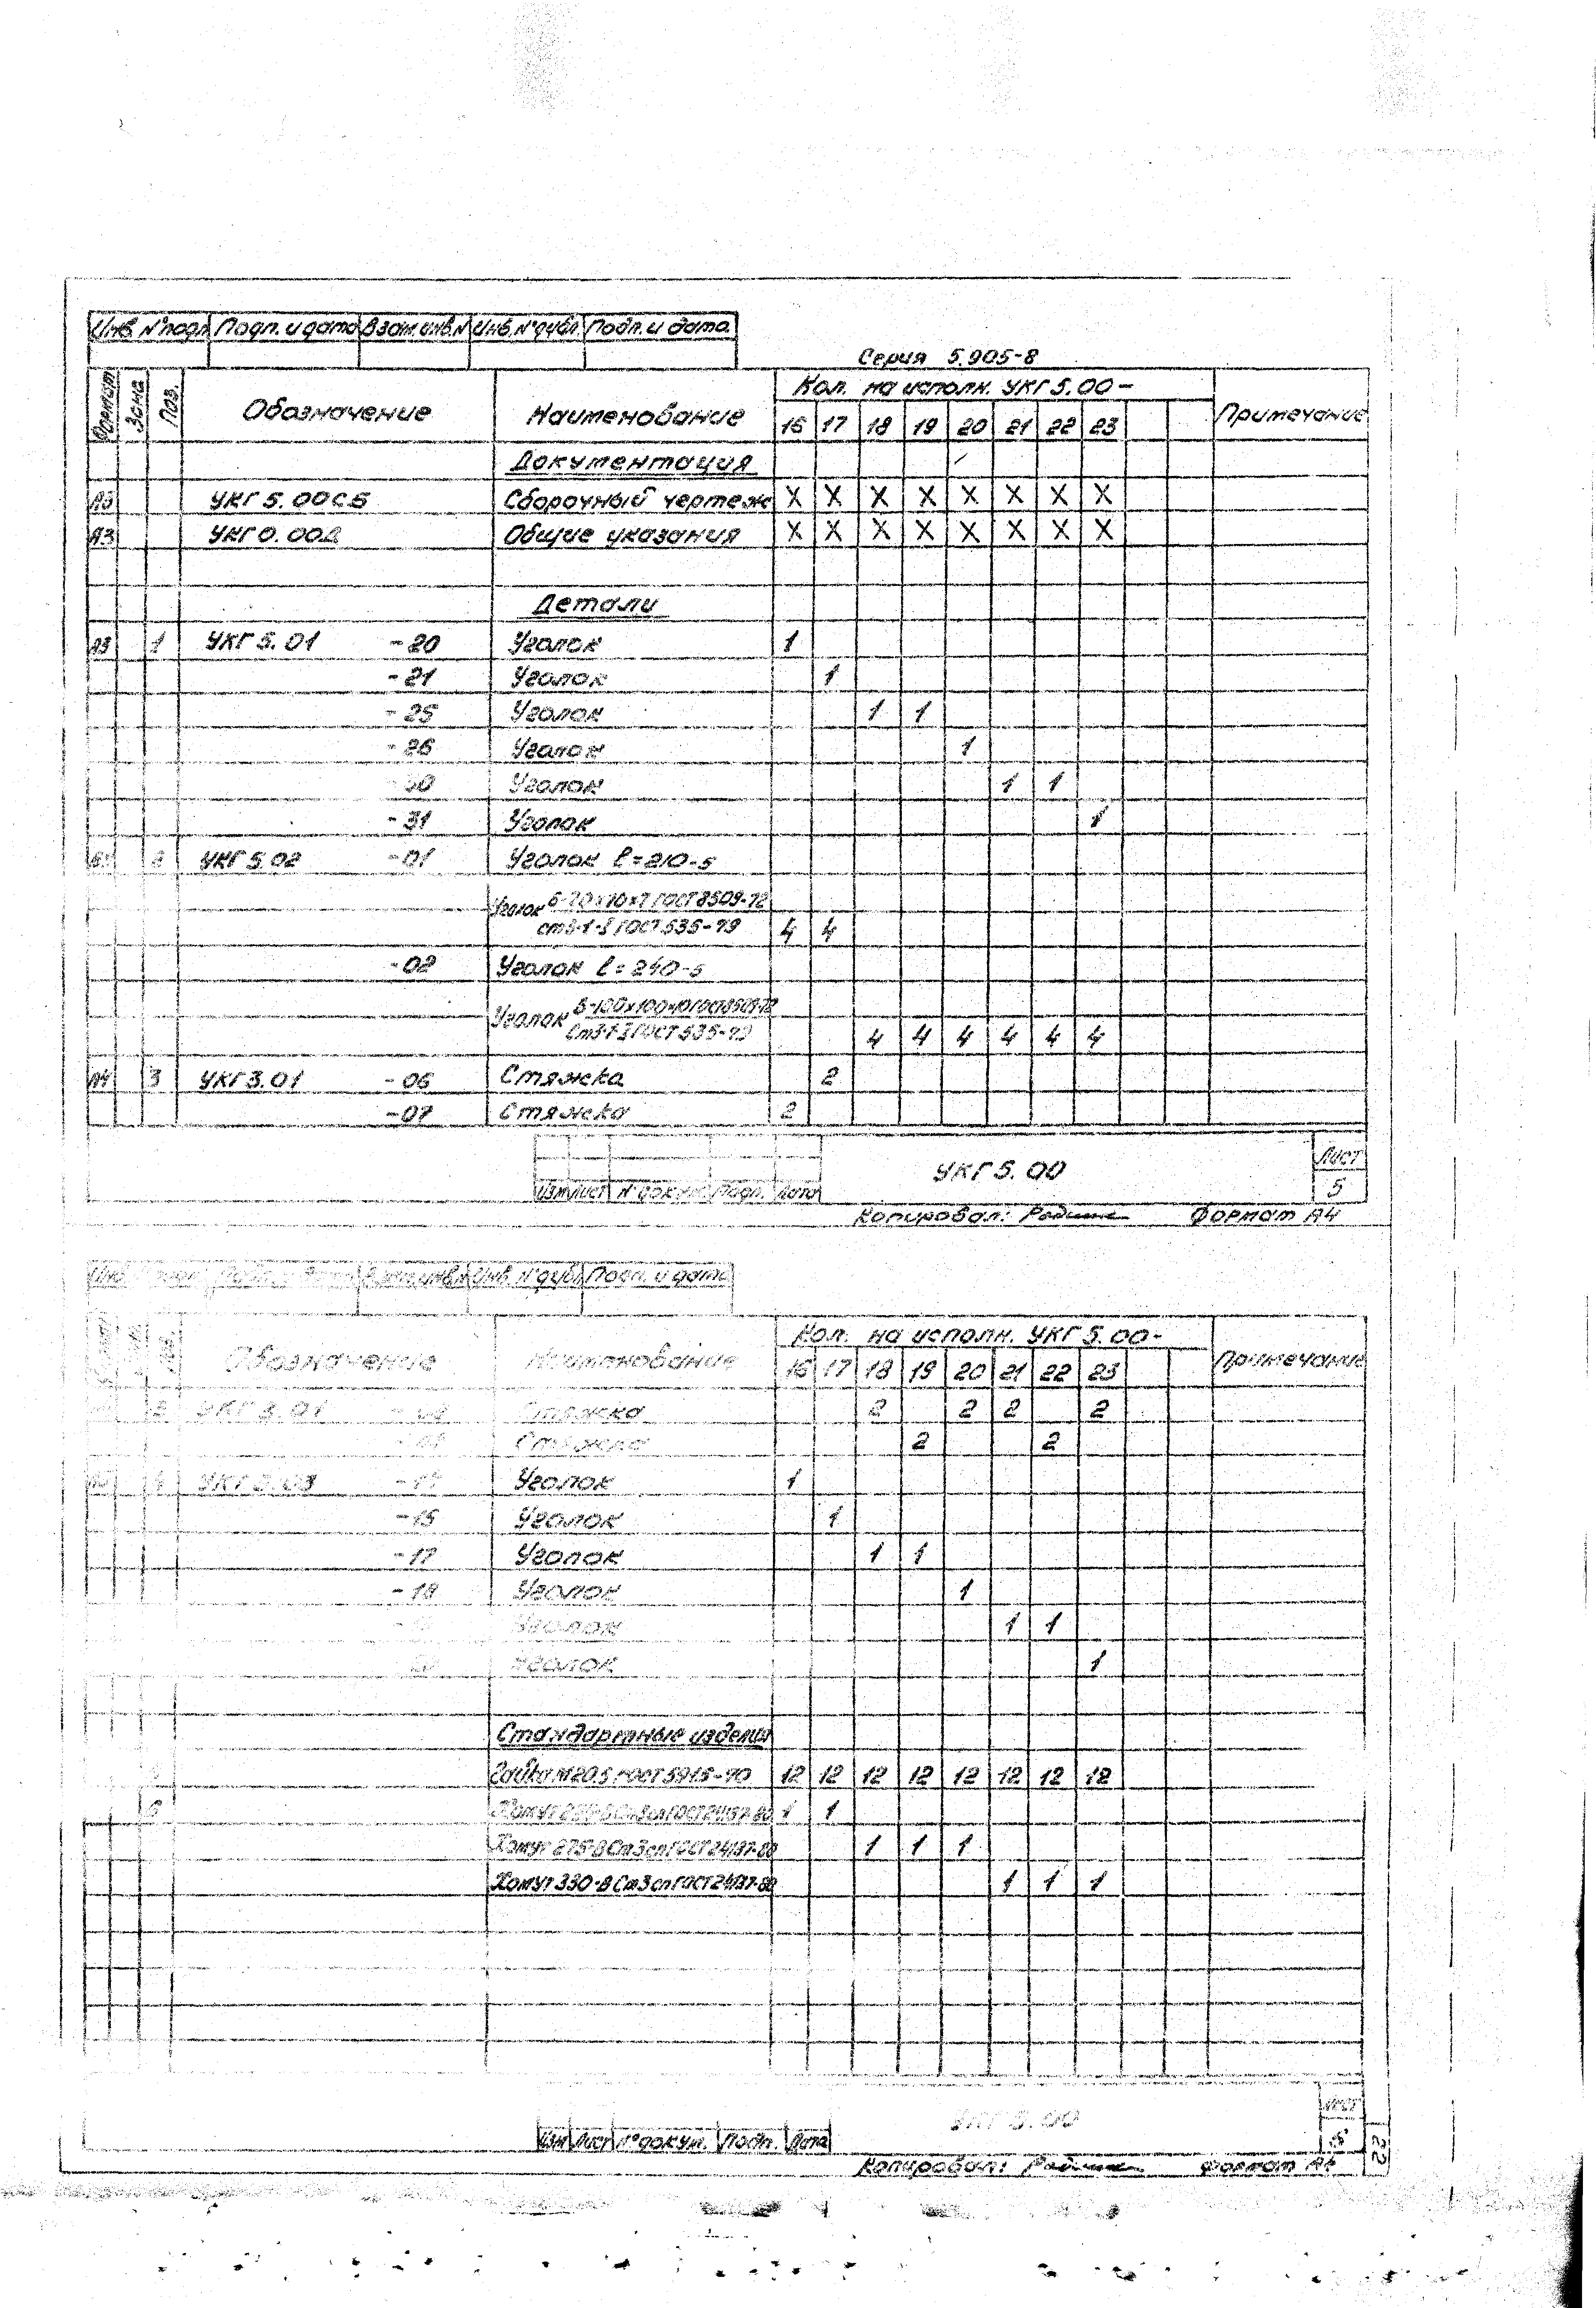 Инв. N°подл. Подп. и дата Взам. инв. N Инв. N°дубл. Подп. и дата
Серия 5.905-8
Формат Зона Поз. Обозначение Наименование Кол. на исполн. УКГ 5.00- Примечание
16 17 18 19 20 21 22 23
Документация
А3 УКГ 5.00СБ Сборочный чертеж X X X X X X X X
А3 УКГ 0.00Д Общие указания X X X X X X X X
Детали
А3 1 УКГ 5.01 -20 Уголок 1
-21 Уголок 1
-25 Уголок 1 1
-26 Уголок 1
-30 Уголок 1 1
-31 Уголок 1
УКГ 5.02 -01 Уголок ℓ=210-5
Уголок Б-70х70х7 ГОСТ 8509-72
ГОСТ 535-79 4 4
-02 Уголок ℓ=240-5
Уголок Б-100х100х10 ГОСТ 8509-72
ГОСТ 535-79 4 4 4 4 4 4
А4 3 УКГ 3.01 -06 Стяжка 2
-07 Стяжка 2
Изм Лист N°докум. Подп. Дата УКГ 5.00 Лист 5
Копировал: Формат А4
Взам. инв. N Инв. N°дубл. Подп. и дата
Обозначение Наименование Кол. на исполн. УКГ 5.00- Примечание
16 17 18 19 20 21 22 23
3 УКГ 3.01 Стяжка 2 2 2 2
Стяжка 2 2
Уголок 1
-15 Уголок 1
-17 Уголок 1 1
-18 Уголок 1
Уголок 1 1
Уголок 1
Стандартные изделия
Гайка М20.5 ГОСТ 5915-70 12 12 12 12 12 12 12 12
6 Хомут ГОСТ 24137-80 1 1
Хомут 275-ВСт3сп ГОСТ 24137-80 1 1 1
Хомут 330-ВСт3сп ГОСТ 24137-80 1 1 1
Изм Лист N°докум. Подп. Дата УКГ 5.00 Лист
Копировал: Формат А4
22